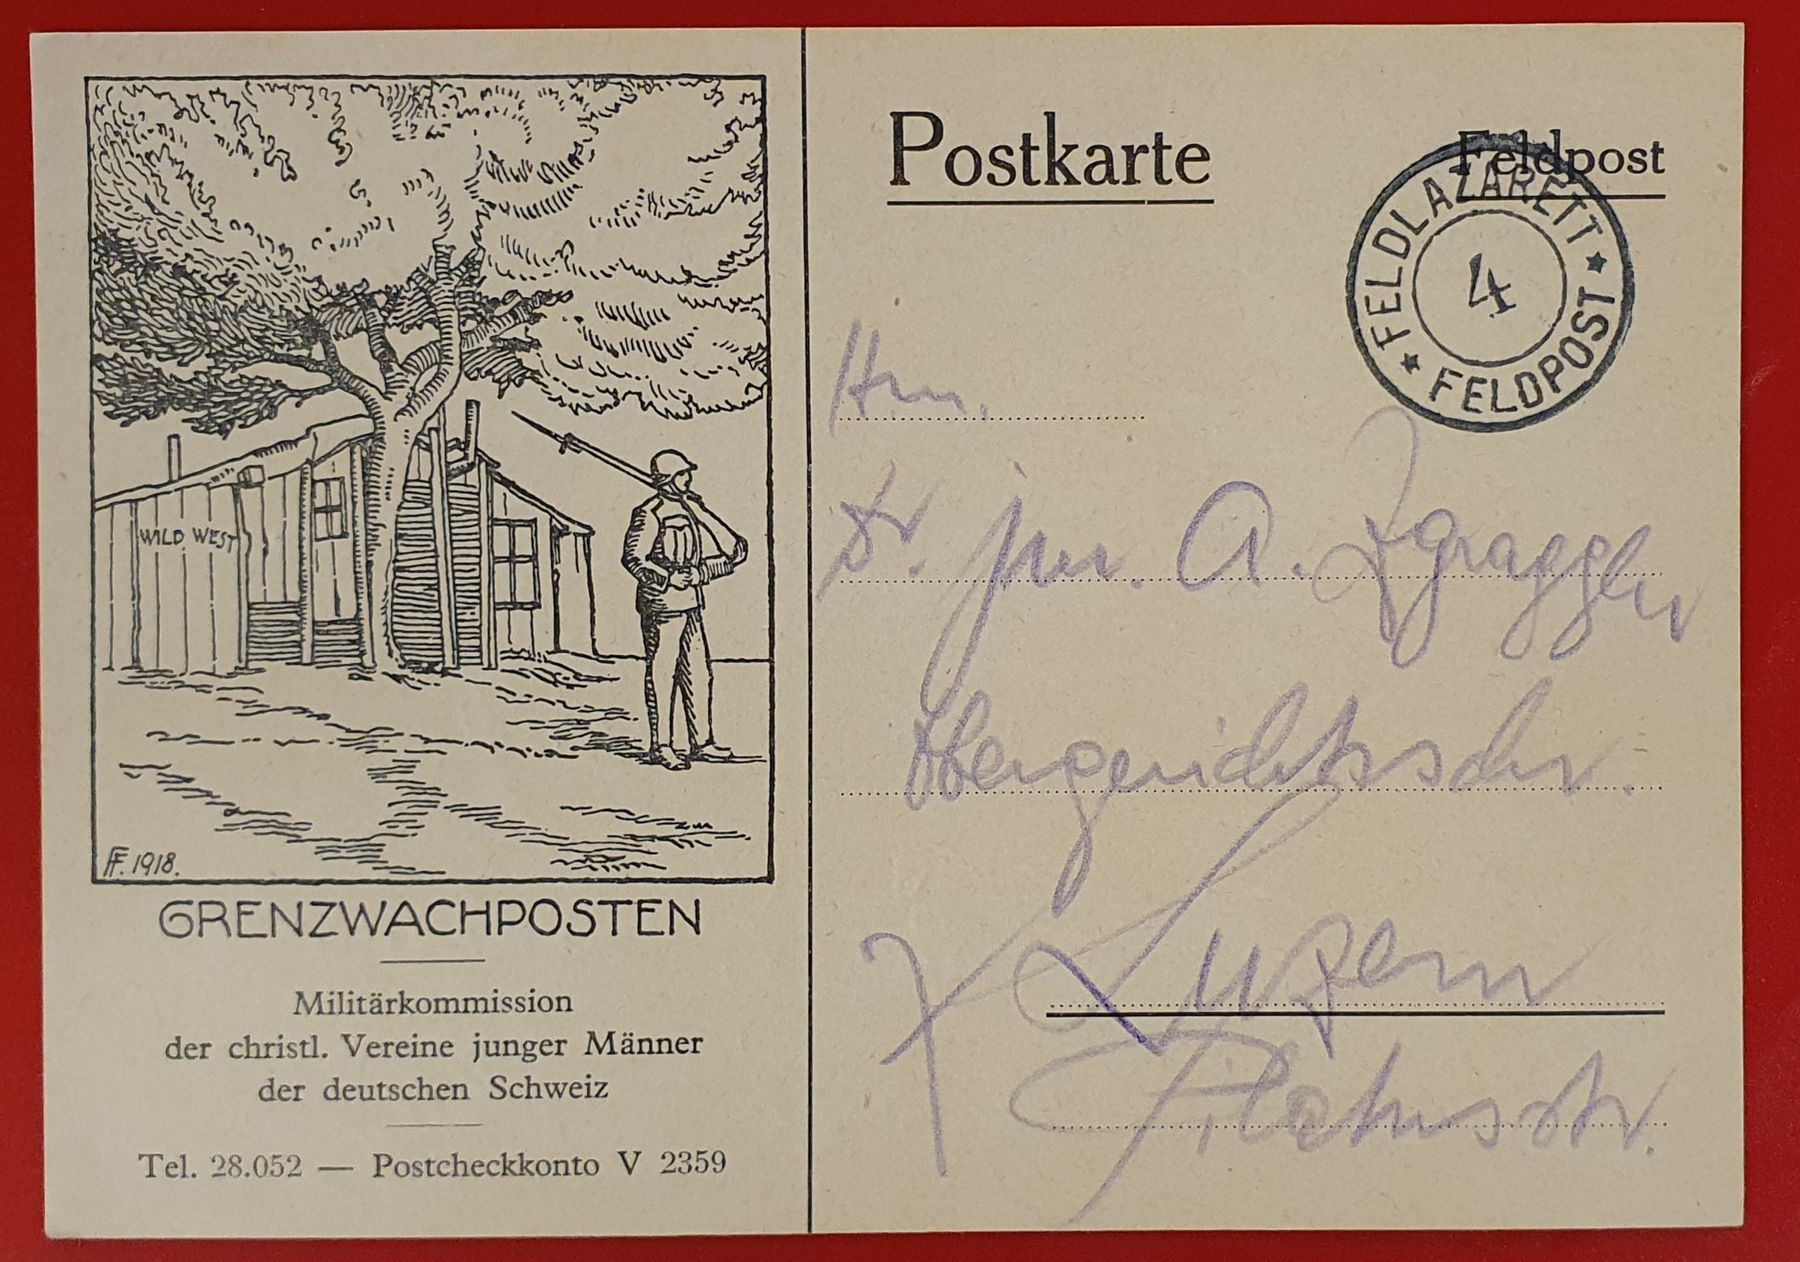 WILD WEST
FF. 1918.
GRENZWACHPOSTEN
Militärkommission
der christl. Vereine junger Männer
der deutschen Schweiz
Tel. 28.052 — Postcheckkonto V 2359
Postkarte
Feldpost
FELDLAZARETT
4
FELDPOST
Hrn.
Dr. jur. A. Zgraggen
Obergerichtsschr.
Luzern
Pilatusstr.